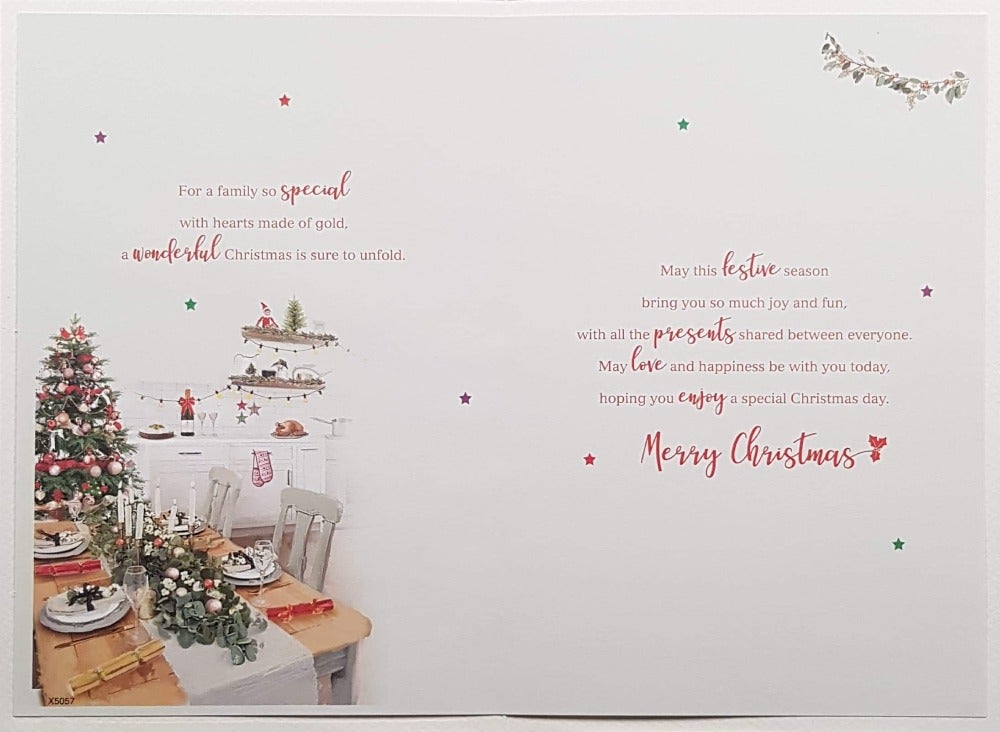 For a family so special
with hearts made of gold,
a wonderful Christmas is sure to unfold.
X5057
May this festive season
bring you so much joy and fun,
with all the presents shared between everyone.
May love and happiness be with you today,
hoping you enjoy a special Christmas day.
Merry Christmas